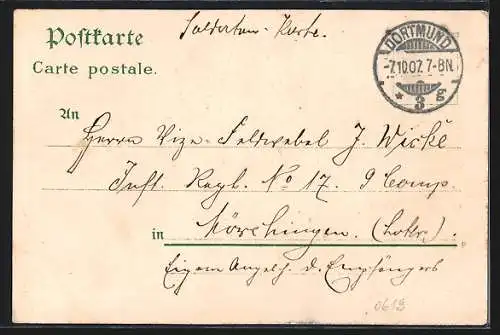 Postkarte
Carte postale.
Soldaten-Karte.
DORTMUND
-7.10.07. 7-8N.
* 3 g
An
Herrn Vize-Feldwebel J. Wicke
Inft. Regt. No 17. 9 Comp.
in Mörchingen. (Lothr.).
Eigene Angelegh. d. Empfängers
0619